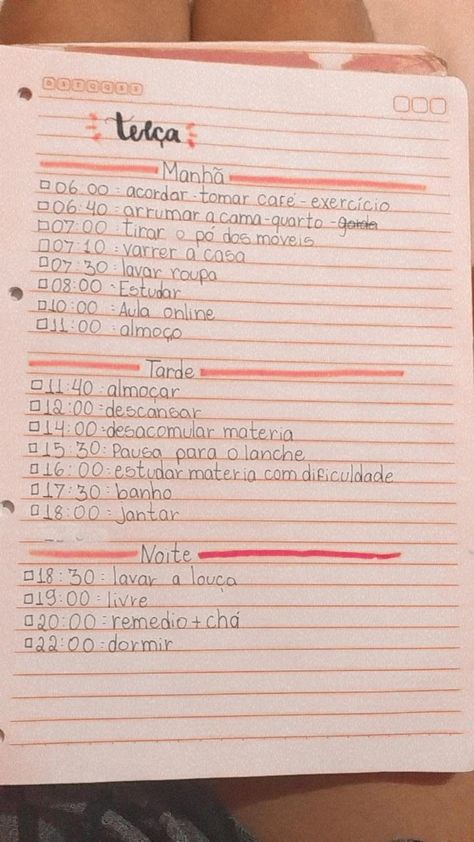 D S T Q Q S S
terça
Manhã
06:00: acordar-tomar café-exercício
06:40-arrumar a cama-quarto-
07:00: tirar o pó dos móveis
07:10: varrer a casa
07:30: lavar roupa
08:00-Estudar
10:00: Aula online
11:00: almoço
Tarde
11:40: almoçar
12:00: descansar
14:00: desacomular materia
15:30: Pausa para o lanche
16:00: estudar materia com dificuldade
17:30: banho
18:00: Jantar
Noite
18:30: lavar a louça
19:00: livre
20:00: remedio + chá
22:00: dormir